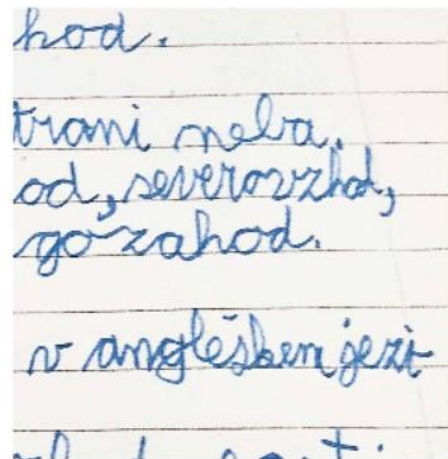 hod.
trani neba.
od, severovzhod,
gozahod.
v angleškem jezi